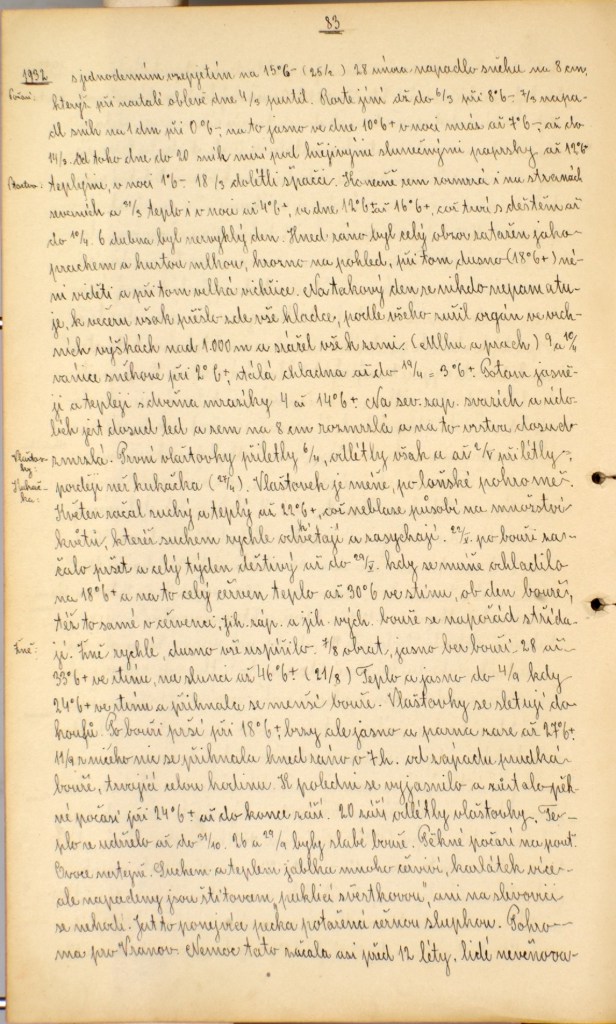 83
1932 s jednodenním vzepjetím na 15°6- (25/2) 28 února napadlo sněhu na 8 cm,
Počasí: kterýž při nastalé oblevě dne 4/3 pustil. Poté jíní až do 6/3 při 8°6- 7/3 napa-
dl sníh na 1 dm při 0°6-, na to jasno ve dne 10°6+ v noci mráz až 7°6-, až do
14/3. Od toho dne do 20 sníh mizí pod hřejivými slunečnými paprsky až 12°6
teplejme, v noci 1°6- 18/3 dolítli špačci. Konečně zem rozmrzá i na stranách
severních a 31/3 teplo i v noci až 4°6+, ve dne 12°6 až 16°6+, což trvá s deštěm až
do 10/4. 6 dubna byl nezvyklý den. Hned ráno byl celý obzor zatažen jako-
prachem a hustou mlhou, hrozno na pohled, při tom dusno (18°6+) né-
ní viděti a při tom velká vichřice. Na takový den se nikdo nepamatu-
je, k večeru však přešlo zde vše hladce, podle všeho zuřil orgán ve vrch-
ních výškách nad 1.000 m a srážel vše k zemi. (Mlhu a prach) 9 a 10/4
vanice sněhové při 2°6+, stálá chladna až do 19/4 = 3°6+. Potom jasně-
ji a tepleji s dvěma mrazíky 4 až 14°6+. Na sev. záp. svazích a údo-
lích jest dosud led a zem na 8 cm rozmrzlá a na to vrstva dosud
zmrzlá. První vlaštovky přilétly 6/4, odlétly však a až 2/5 přilétly,
Vlaštov-
ky:
později než kukačka (29/4). Vlaštovek je méně, po loňské pohromě.
Kukač-
ka:
Květen začal suchý a teplý až 22°6+, což neblaze působí na množství
květů, kteréž suchem rychle odkvétají a zasychají. 22/V. po bouři za-
čalo pršet a celý týden deštivý až do 29/V. kdy se může ochladilo
na 18°6+ a na to celý červen teplo až 30°6 ve stínu, ob den bouře,
též to samé v červenci, Jih. záp. a jih. vých. bouře se napořád střída-
Žně: jí. Žně rychlé, dusno vše uspíšilo. 7/8 obrat, jasno bez bouří 28 až
33°6+ ve stínu, na slunci až 46°6+ (21/8) Teplo a jasno do 4/9 kdy
24°6+ ve stínu a přihnala se menší bouře. Vlaštovky se sletují do
houfů. Po bouři prší při 18°6+, brzy ale jasno a parna zase až 27°6+.
11/9 z ničeho nic se přihnala hned ráno v 7 h. od západu prudká
bouře, trvající celou hodinu. K poledni se vyjasnilo a zůstalo pěk-
né počasí při 24°6+ až do konce září. 20 září odlétly vlaštovky. Te-
plo se udrželo až do 31/10. 26 a 29/9 byly slabé bouře. Pěkné počasí na pouť.
Ovoce nestejné. Suchem a teplem jablka mnoho červiví, karlátek více-
ale napadeny jsou štítovcem „puklicí švestkovou", ani na slivovici
se nehodí. Jest to ponejvíce pecka potažená černou slupkou. Pohro-
ma pro Vranov. Nemoc tato začala asi před 12 léty, lidé nevěnova-